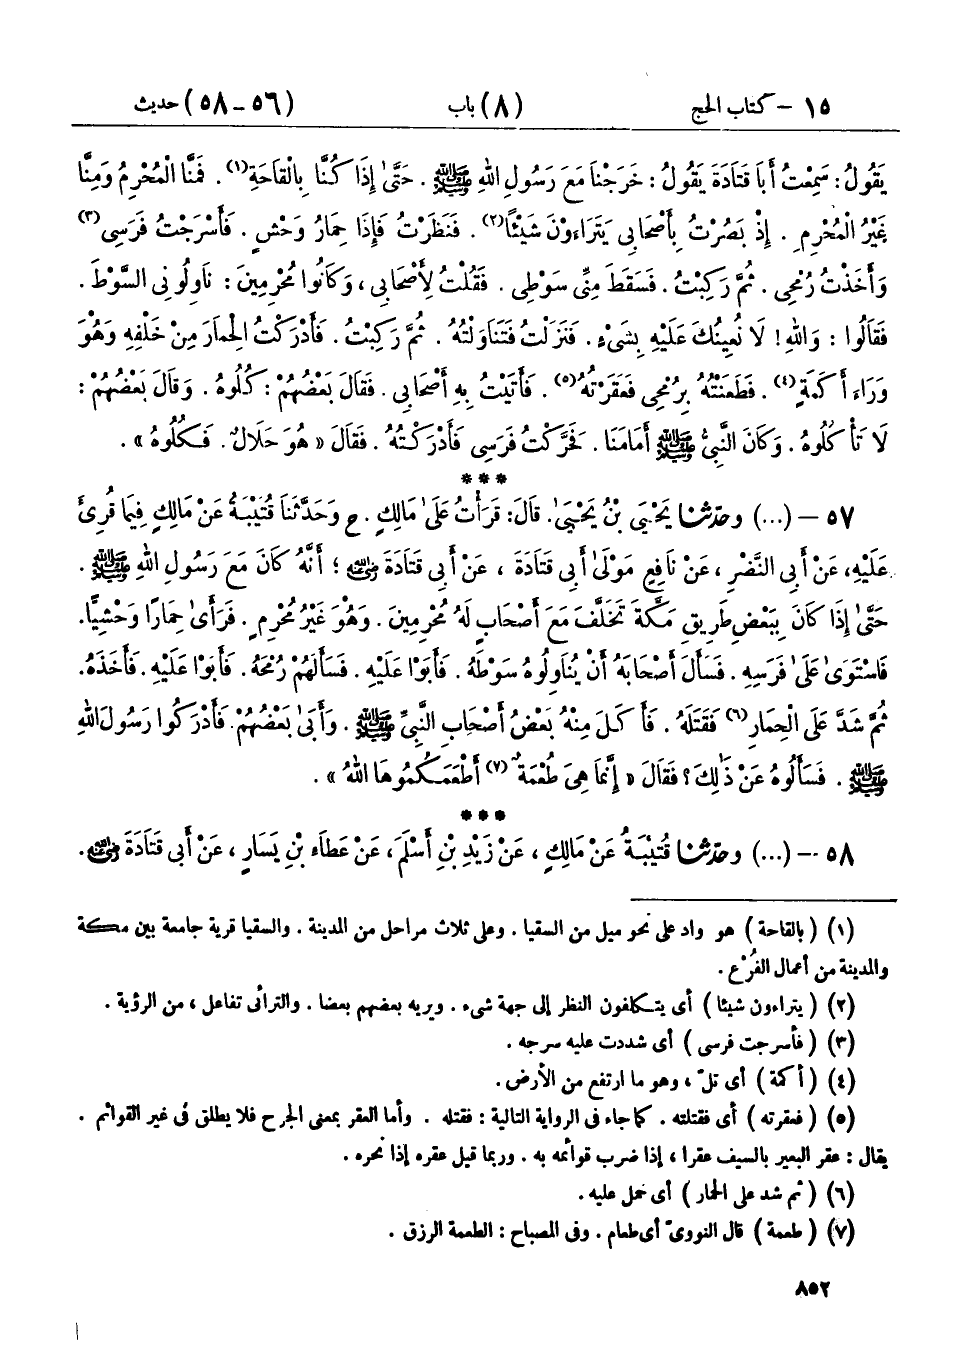 ١٥ – كتاب الحج (٨) باب (٥٦ – ٥٨) حديث
يَقُولُ: سَمِعْتُ أَبَا قَتَادَةَ يَقُولُ: خَرَجْنَا مَعَ رَسُولِ اللهِ ﷺ . حَتَّىٰ إِذَا كُنَّا بِالْقَاحَةِ(١) . فَمِنَّا الْمُحْرِمُ وَمِنَّا
غَيْرُ الْمُحْرِمِ . إِذْ بَصُرْتُ بِأَصْحَابِي يَتَرَاءَوْنَ شَيْئًا(٢) . فَنَظَرْتُ فَإِذَا حِمَارُ وَحْشٍ . فَأَسْرَجْتُ فَرَسِي(٣)
وَأَخَذْتُ رُمْحِي . ثُمَّ رَكِبْتُ . فَسَقَطَ مِنِّي سَوْطِي . فَقُلْتُ لِأَصْحَابِي ، وَكَانُوا مُحْرِمِينَ : نَاوِلُونِي السَّوْطَ .
فَقَالُوا : وَاللهِ ! لَا نُعِينُكَ عَلَيْهِ بِشَيْءٍ . فَنَزَلْتُ فَتَنَاوَلْتُهُ . ثُمَّ رَكِبْتُ . فَأَدْرَكْتُ الْحِمَارَ مِنْ خَلْفِهِ وَهُوَ
وَرَاءَ أَكَمَةٍ(٤) . فَطَعَنْتُهُ بِرُمْحِي فَعَقَرْتُهُ(٥) . فَأَتَيْتُ بِهِ أَصْحَابِي . فَقَالَ بَعْضُهُمْ : كُلُوهُ . وَقَالَ بَعْضُهُمْ :
لَا تَأْكُلُوهُ . وَكَانَ النَّبِيُّ ﷺ أَمَامَنَا . فَحَرَّكْتُ فَرَسِي فَأَدْرَكْتُهُ . فَقَالَ « هُوَ حَلَالٌ . فَكُلُوهُ » .
***
٥٧ – (...) وحَدَّثَنَا يَحْيَى بْنُ يَحْيَىٰ. قَالَ: قَرَأْتُ عَلَىٰ مَالِكٍ . ح وَحَدَّثَنَا قُتَيْبَةُ عَنْ مَالِكٍ فِيمَا قُرِئَ
عَلَيْهِ، عَنْ أَبِي النَّضْرِ ، عَنْ نَافِعٍ مَوْلَىٰ أَبِي قَتَادَةَ ، عَنْ أَبِي قَتَادَةَ رضي الله عنه ؛ أَنَّهُ كَانَ مَعَ رَسُولِ اللهِ ﷺ .
حَتَّىٰ إِذَا كَانَ بِبَعْضِ طَرِيقِ مَكَّةَ تَخَلَّفَ مَعَ أَصْحَابٍ لَهُ مُحْرِمِينَ . وَهُوَ غَيْرُ مُحْرِمٍ . فَرَأَىٰ حِمَارًا وَحْشِيًّا.
فَاسْتَوَىٰ عَلَىٰ فَرَسِهِ . فَسَأَلَ أَصْحَابَهُ أَنْ يُنَاوِلُوهُ سَوْطَهُ . فَأَبَوْا عَلَيْهِ . فَسَأَلَهُمْ رُمْحَهُ . فَأَبَوْا عَلَيْهِ . فَأَخَذَهُ.
ثُمَّ شَدَّ عَلَى الْحِمَارِ(٦) فَقَتَلَهُ . فَأَكَلَ مِنْهُ بَعْضُ أَصْحَابِ النَّبِيِّ ﷺ . وَأَبَىٰ بَعْضُهُمْ. فَأَدْرَكُوا رَسُولَ اللهِ
ﷺ . فَسَأَلُوهُ عَنْ ذٰلِكَ ؟ فَقَالَ « إِنَّمَا هِيَ طُعْمَةٌ(٧) أَطْعَمَكُمُوهَا اللهُ » .
***
٥٨ – (...) وحَدَّثَنَا قُتَيْبَةُ عَنْ مَالِكٍ ، عَنْ زَيْدِ بْنِ أَسْلَمَ، عَنْ عَطَاءِ بْنِ يَسَارٍ ، عَنْ أَبِي قَتَادَةَ رضي الله عنه .
(١) ( بالقاحة ) هو واد على نحو ميل من السقيا . وعلى ثلاث مراحل من المدينة . والسقيا قرية جامعة بين مكة
والمدينة من أعمال الفُرْع .
(٢) ( يتراءون شيئا ) أى يتكلفون النظر إلى جهة شىء . ويريه بعضهم بعضا . والترائى تفاعل ، من الرؤية .
(٣) ( فأسرجت فرسى ) أى شددت عليه سرجه .
(٤) ( أكمة ) أى تلّ ، وهو ما ارتفع من الأرض .
(٥) ( فعقرته ) أى فقتلته . كما جاء فى الرواية التالية : فقتله . وأما العقر بمعنى الجرح فلا يطلق فى غير القوائم .
يقال : عقر البعير بالسيف عقرا ، إذا ضرب قوائمه به . وربما قيل عقره إذا نحره .
(٦) ( ثم شد على الحمار ) أى حمل عليه .
(٧) ( طعمة ) قال النووىّ أى طعام . وفى المصباح : الطعمة الرزق .
٨٥٢